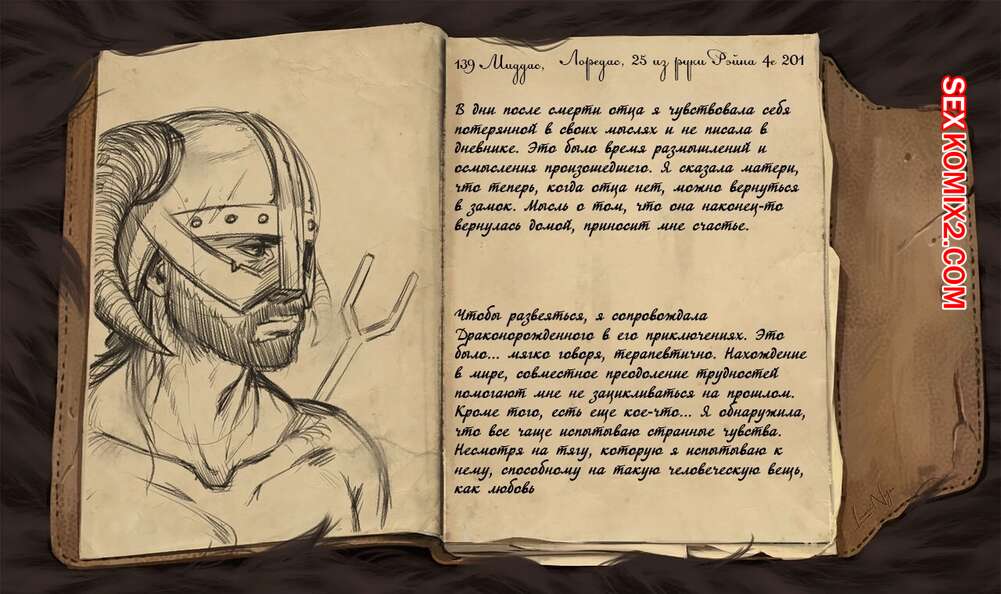 139 Миддас, Лоредас, 25 из руки Рэйна 4е 201
В дни после смерти отца я чувствовала себя
потерянной в своих мыслях и не писала в
дневнике. Это было время размышлений и
осмысления произошедшего. Я сказала матери,
что теперь, когда отца нет, можно вернуться
в замок. Мысль о том, что она наконец-то
вернулась домой, приносит мне счастье.
Чтобы развеяться, я сопровождала
Драконорожденного в его приключениях. Это
было... мягко говоря, терапевтично. Нахождение
в мире, совместное преодоление трудностей
помогают мне не зацикливаться на прошлом.
Кроме того, есть еще кое-что... Я обнаружила,
что все чаще испытываю странные чувства.
Несмотря на тягу, которую я испытываю к
нему, способному на такую человеческую вещь,
как любовь
SEXKOMIX2.COM